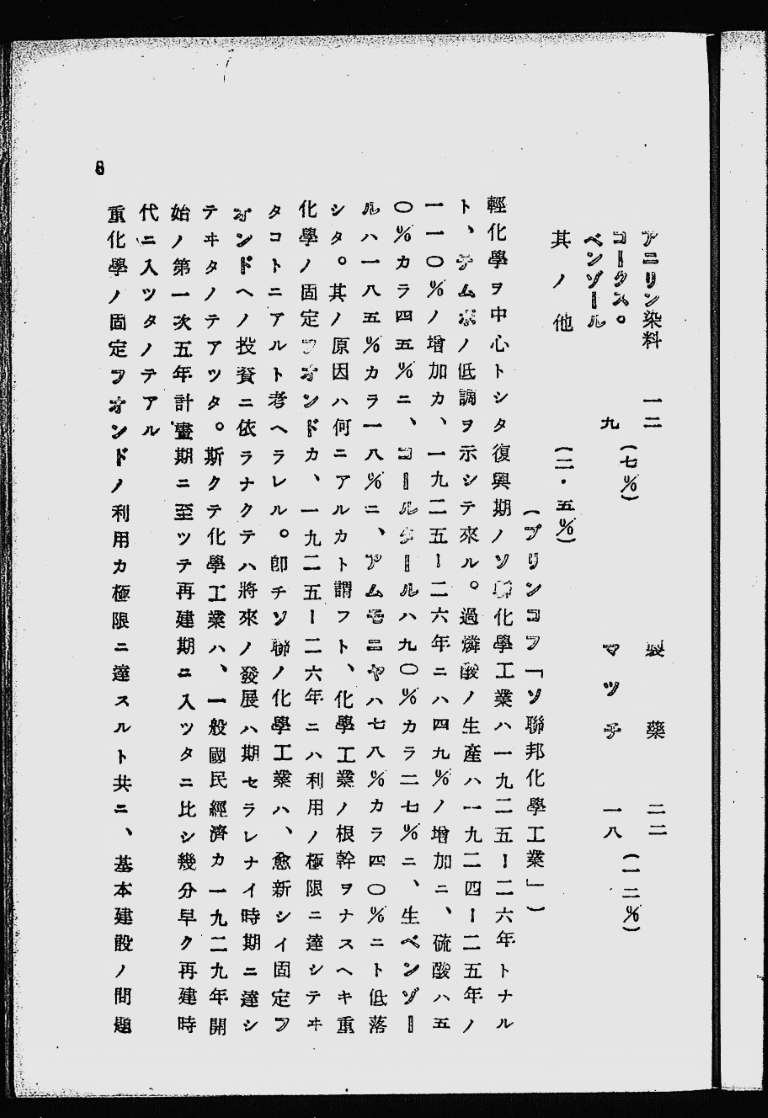 アニリン染料　一二（七％）　製藥　二二（一二％）
コークス。ベンゾール　九　マツチ　一八
其ノ他　（二・五％）
（プリンコフ「ソ聯邦化學工業」）
輕化學ヲ中心トシタ復興期ノソ聯化學工業ハ一九二五ー二六年トナル
ト、テムポノ低調ヲ示シテ來ル。過燐酸ノ生産ハ一九二四ー二五年ノ
一一〇％ノ增加カ、一九二五ー二六年ニハ四九％ノ增加ニ、硫酸ハ五
〇％カラ四五％ニ、コールタールハ九〇％カラ二七％ニ、生ベンゾー
ルハ一八五％カラ一八％ニ、アムモニヤハ七八％カラ四〇％ニト低落
シタ。其ノ原因ハ何ニアルカト謂フト、化學工業ノ根幹ヲナスヘキ重
化學ノ固定フオンドカ、一九二五ー二六年ニハ利用ノ極限ニ達シテヰ
タコトニアルト考ヘラレル。卽チソ聯ノ化學工業ハ、愈新シイ固定フ
オンドヘノ投資ニ依ラナクテハ將來ノ發展ハ期セラレナイ時期ニ達シ
テヰタノテアツタ。斯クテ化學工業ハ、一般國民經濟カ一九二九年開
始ノ第一次五年計畫期ニ至ツテ再建期ニ入ツタニ比シ幾分早ク再建時
代ニ入ツタノテアル
重化學ノ固定フオンドノ利用カ極限ニ達スルト共ニ、基本建設ノ問題